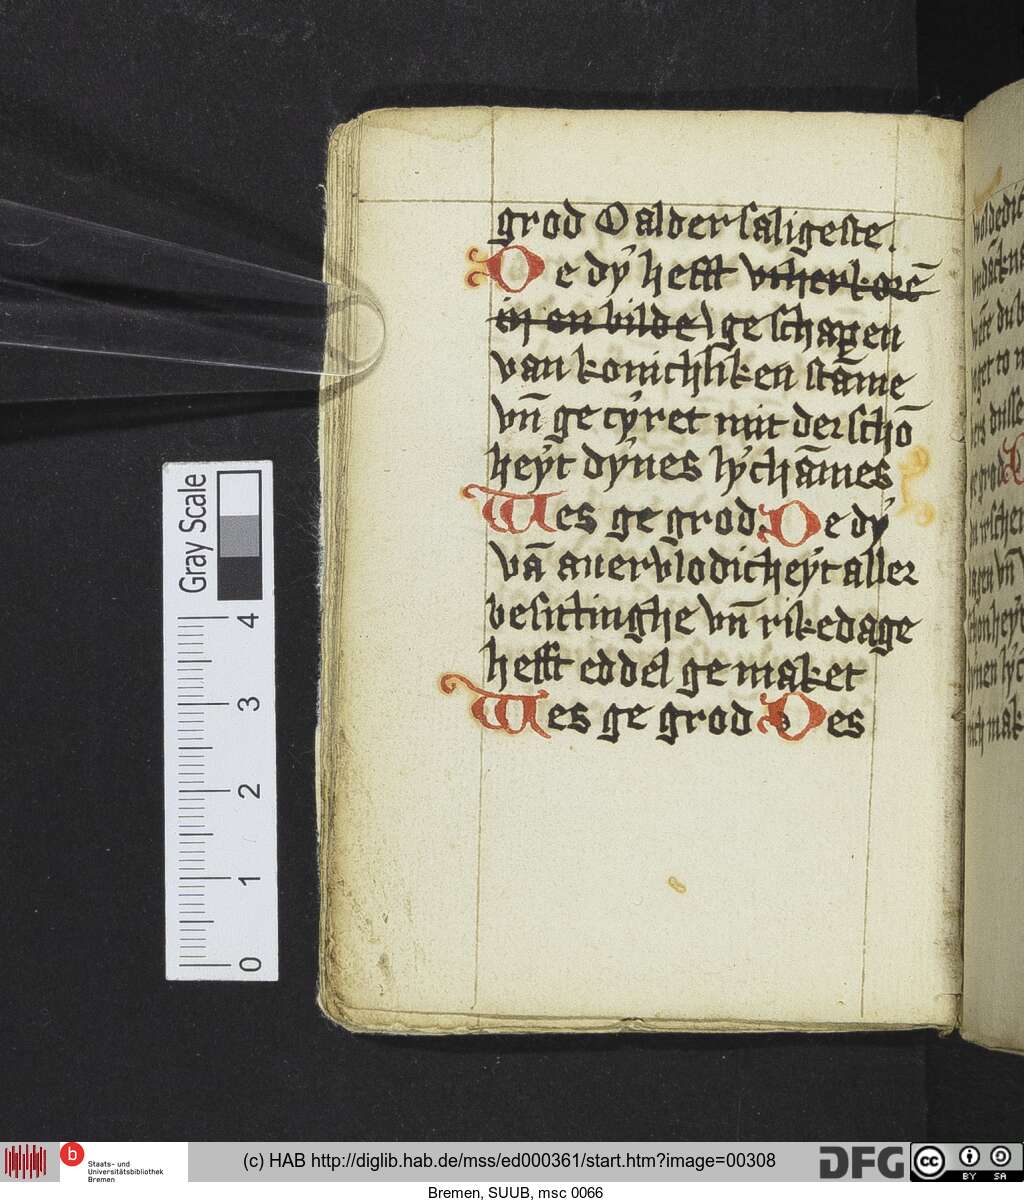 grod O alder saligeste.
De dÿ hefft vtherkorē
in en bilde) geschapen
van konichliken stāme
vn̄ ge cÿret mit der schō
heÿt dÿnes lÿchāmes
Wes ge grod. De dÿ
vā auervlodicheÿt aller
besittinghe vn̄ rikedage
hefft eddel ge maket
Wes ge grod Des
Gray Scale
4
3
2
1
0
b
Staats- und
Universitätsbibliothek
Bremen
(c) HAB http://diglib.hab.de/mss/ed000361/start.htm?image=00308
DFG
cc
BY SA
Bremen, SUUB, msc 0066